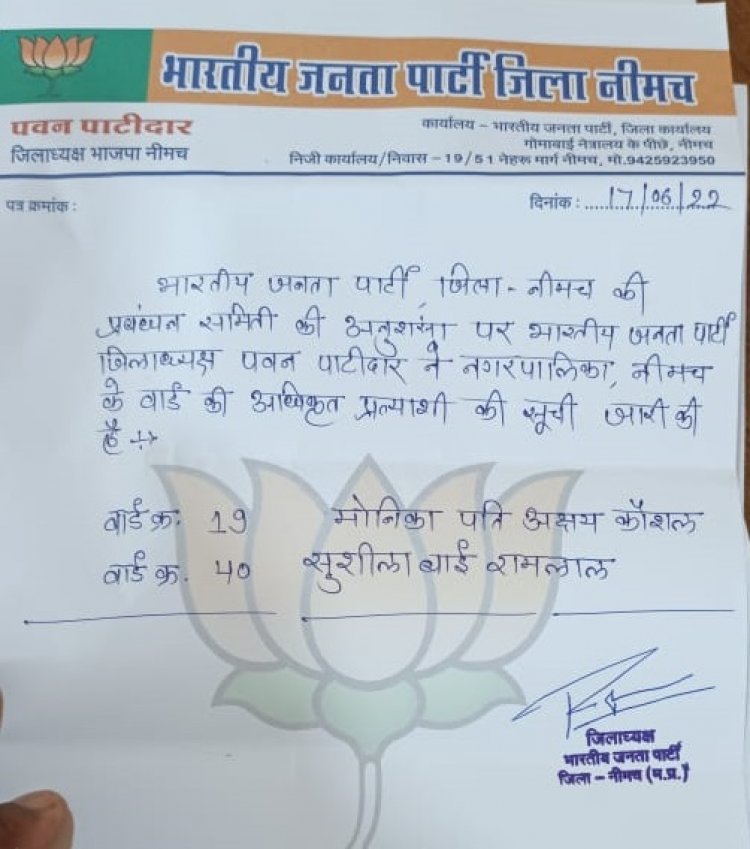 भारतीय जनता पार्टी जिला नीमच
पवन पाटीदार
जिलाध्यक्ष भाजपा नीमच
कार्यालय – भारतीय जनता पार्टी, जिला कार्यालय
गोमाबाई नेत्रालय के पीछे, नीमच
निजी कार्यालय/निवास – 19/51 नेहरू मार्ग नीमच, मो.9425923950
पत्र क्रमांक :
दिनांक : 17/06/22
भारतीय जनता पार्टी, जिला - नीमच की
प्रबंधन समिति की अनुशंसा पर भारतीय जनता पार्टी
जिलाध्यक्ष पवन पाटीदार ने नगरपालिका, नीमच
के वार्ड की अधिकृत प्रत्याशी की सूची जारी की
है
वार्ड क्र. 19 मोनिका पति अक्षय कौशल
वार्ड क्र. 40 सुशीला बाई रामलाल
जिलाध्यक्ष
भारतीय जनता पार्टी
जिला – नीमच (म.प्र.)